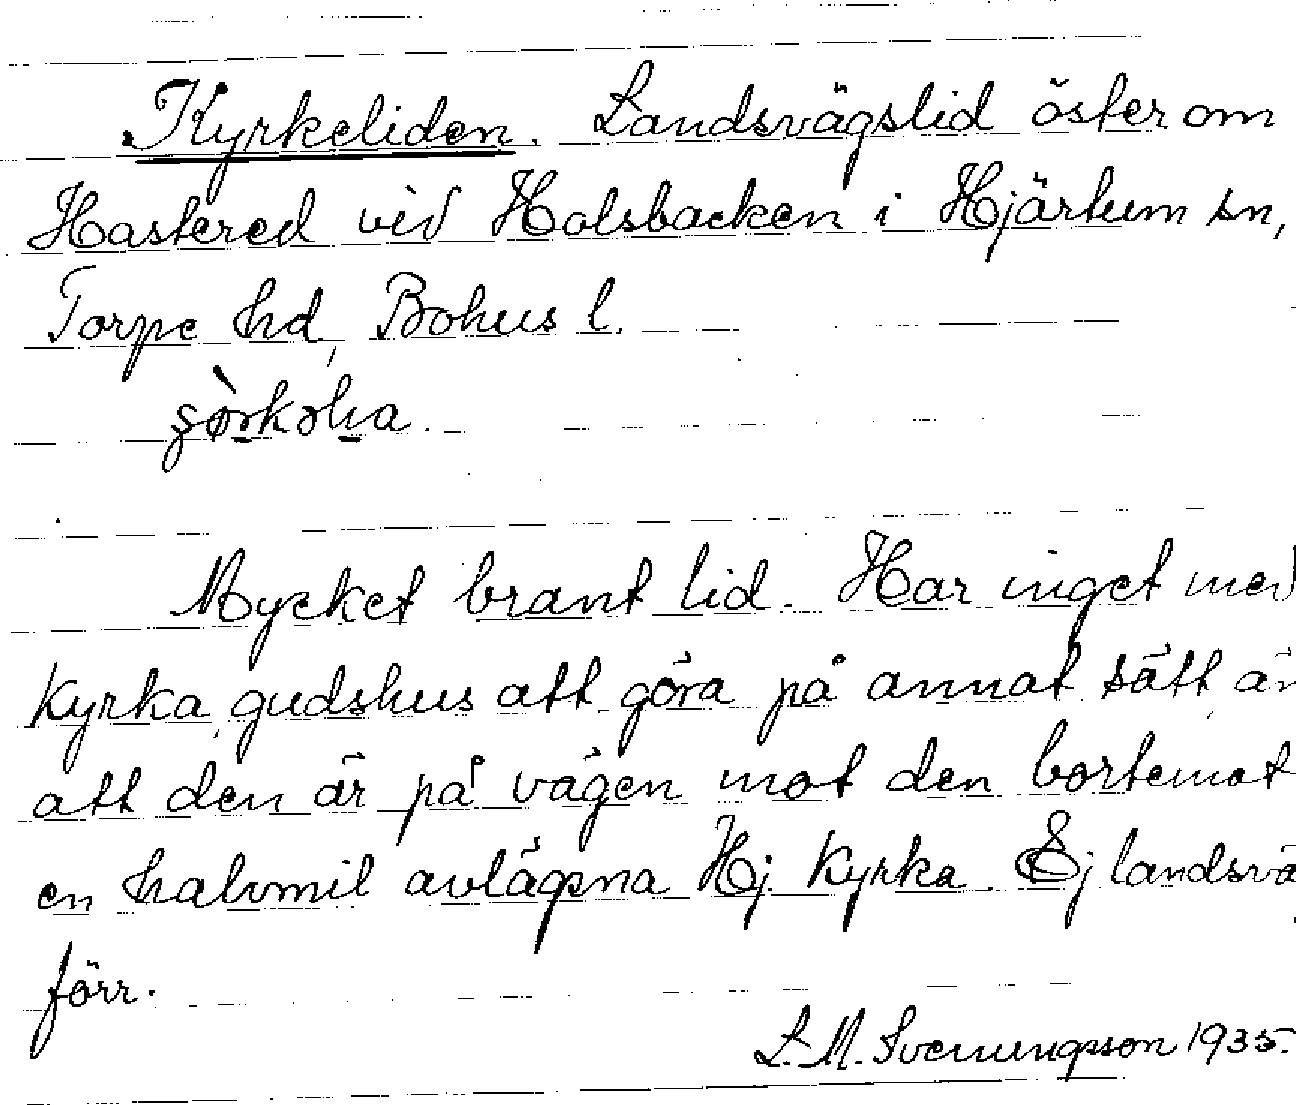 Kyrkeliden. Landsvägslid öster om
Hastered vid Holsbacken i Hjärtum sn,
Torpe hd, Bohus l.
Mycket brant lid. Har inget med
kyrka, gudshus att göra på annat sätt än
att den är på vägen mot den bortemot
en halvmil avlägsna Hj. kyrka. Ej landsvä
förr.
L. M. Svenungsson 1935.